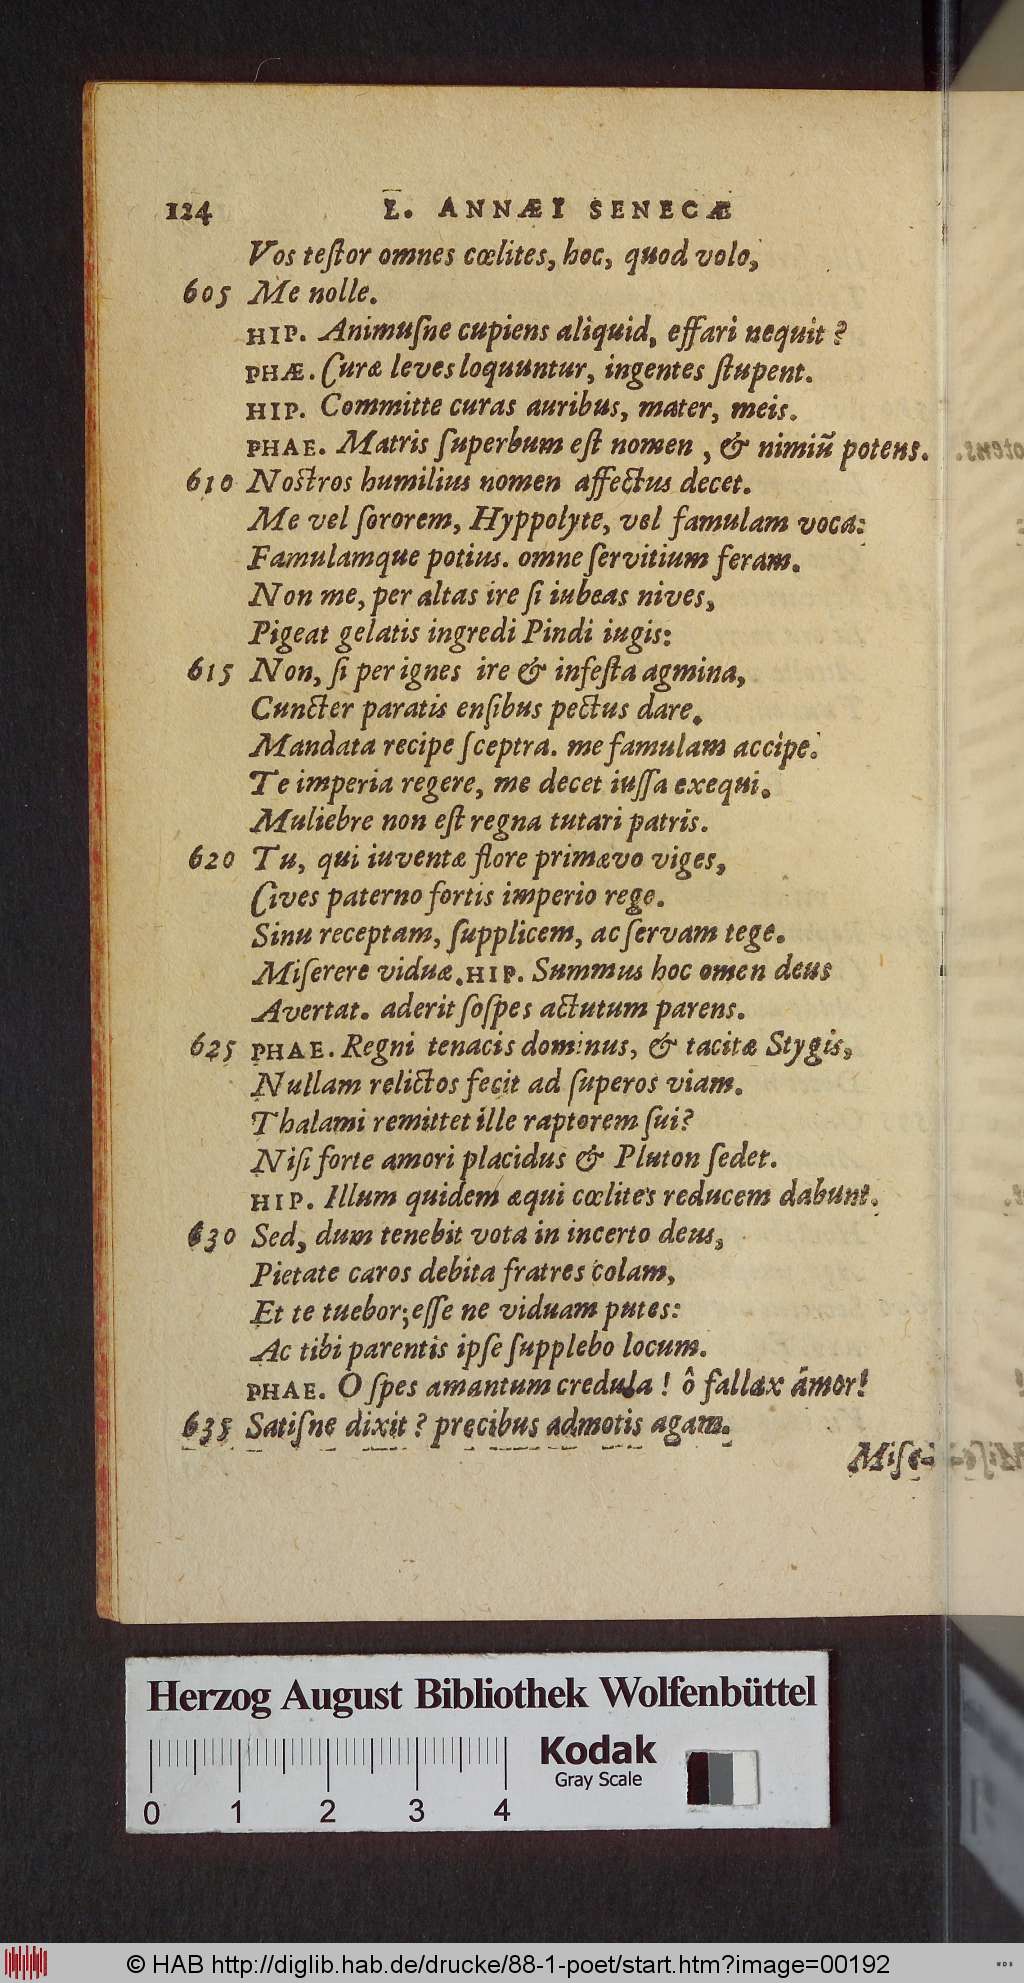 124 L. ANNÆI SENECÆ
Vos teſtor omnes cœlites, hoc, quod volo,
605 Me nolle.
HIP. Animuſne cupiens aliquid, effari nequit?
PHÆ. Curæ leves loquuntur, ingentes ſtupent.
HIP. Committe curas auribus, mater, meis.
PHAE. Matris ſuperbum eſt nomen, & nimiũ potens.
610 Noſtros humilius nomen affectus decet.
Me vel ſororem, Hyppolyte, vel famulam voca:
Famulamque potius. omne ſervitium feram.
Non me, per altas ire ſi iubeas nives,
Pigeat gelatis ingredi Pindi iugis:
615 Non, ſi per ignes ire & infeſta agmina,
Cuncter paratis enſibus pectus dare.
Mandata recipe ſceptra. me famulam accipe.
Te imperia regere, me decet iuſſa exequi.
Muliebre non eſt regna tutari patris.
620 Tu, qui iuventæ flore primævo viges,
Cives paterno fortis imperio rege.
Sinu receptam, ſupplicem, ac ſervam tege.
Miſerere viduæ. HIP. Summus hoc omen deus
Avertat. aderit ſoſpes actutum parens.
625 PHAE. Regni tenacis dominus, & tacitæ Stygis,
Nullam relictos fecit ad ſuperos viam.
Thalami remittet ille raptorem ſui?
Niſi forte amori placidus & Pluton ſedet.
HIP. Illum quidem æqui cœlites reducem dabunt.
630 Sed, dum tenebit vota in incerto deus,
Pietate caros debita fratres colam,
Et te tuebor; eſſe ne viduam putes:
Ac tibi parentis ipſe ſupplebo locum.
PHAE. O ſpes amantum credula! ô fallax amor!
635 Satiſne dixit? precibus admotis agam.
Miſe-
Herzog August Bibliothek Wolfenbüttel
Kodak
Gray Scale
0 1 2 3 4
© HAB http://diglib.hab.de/drucke/88-1-poet/start.htm?image=00192